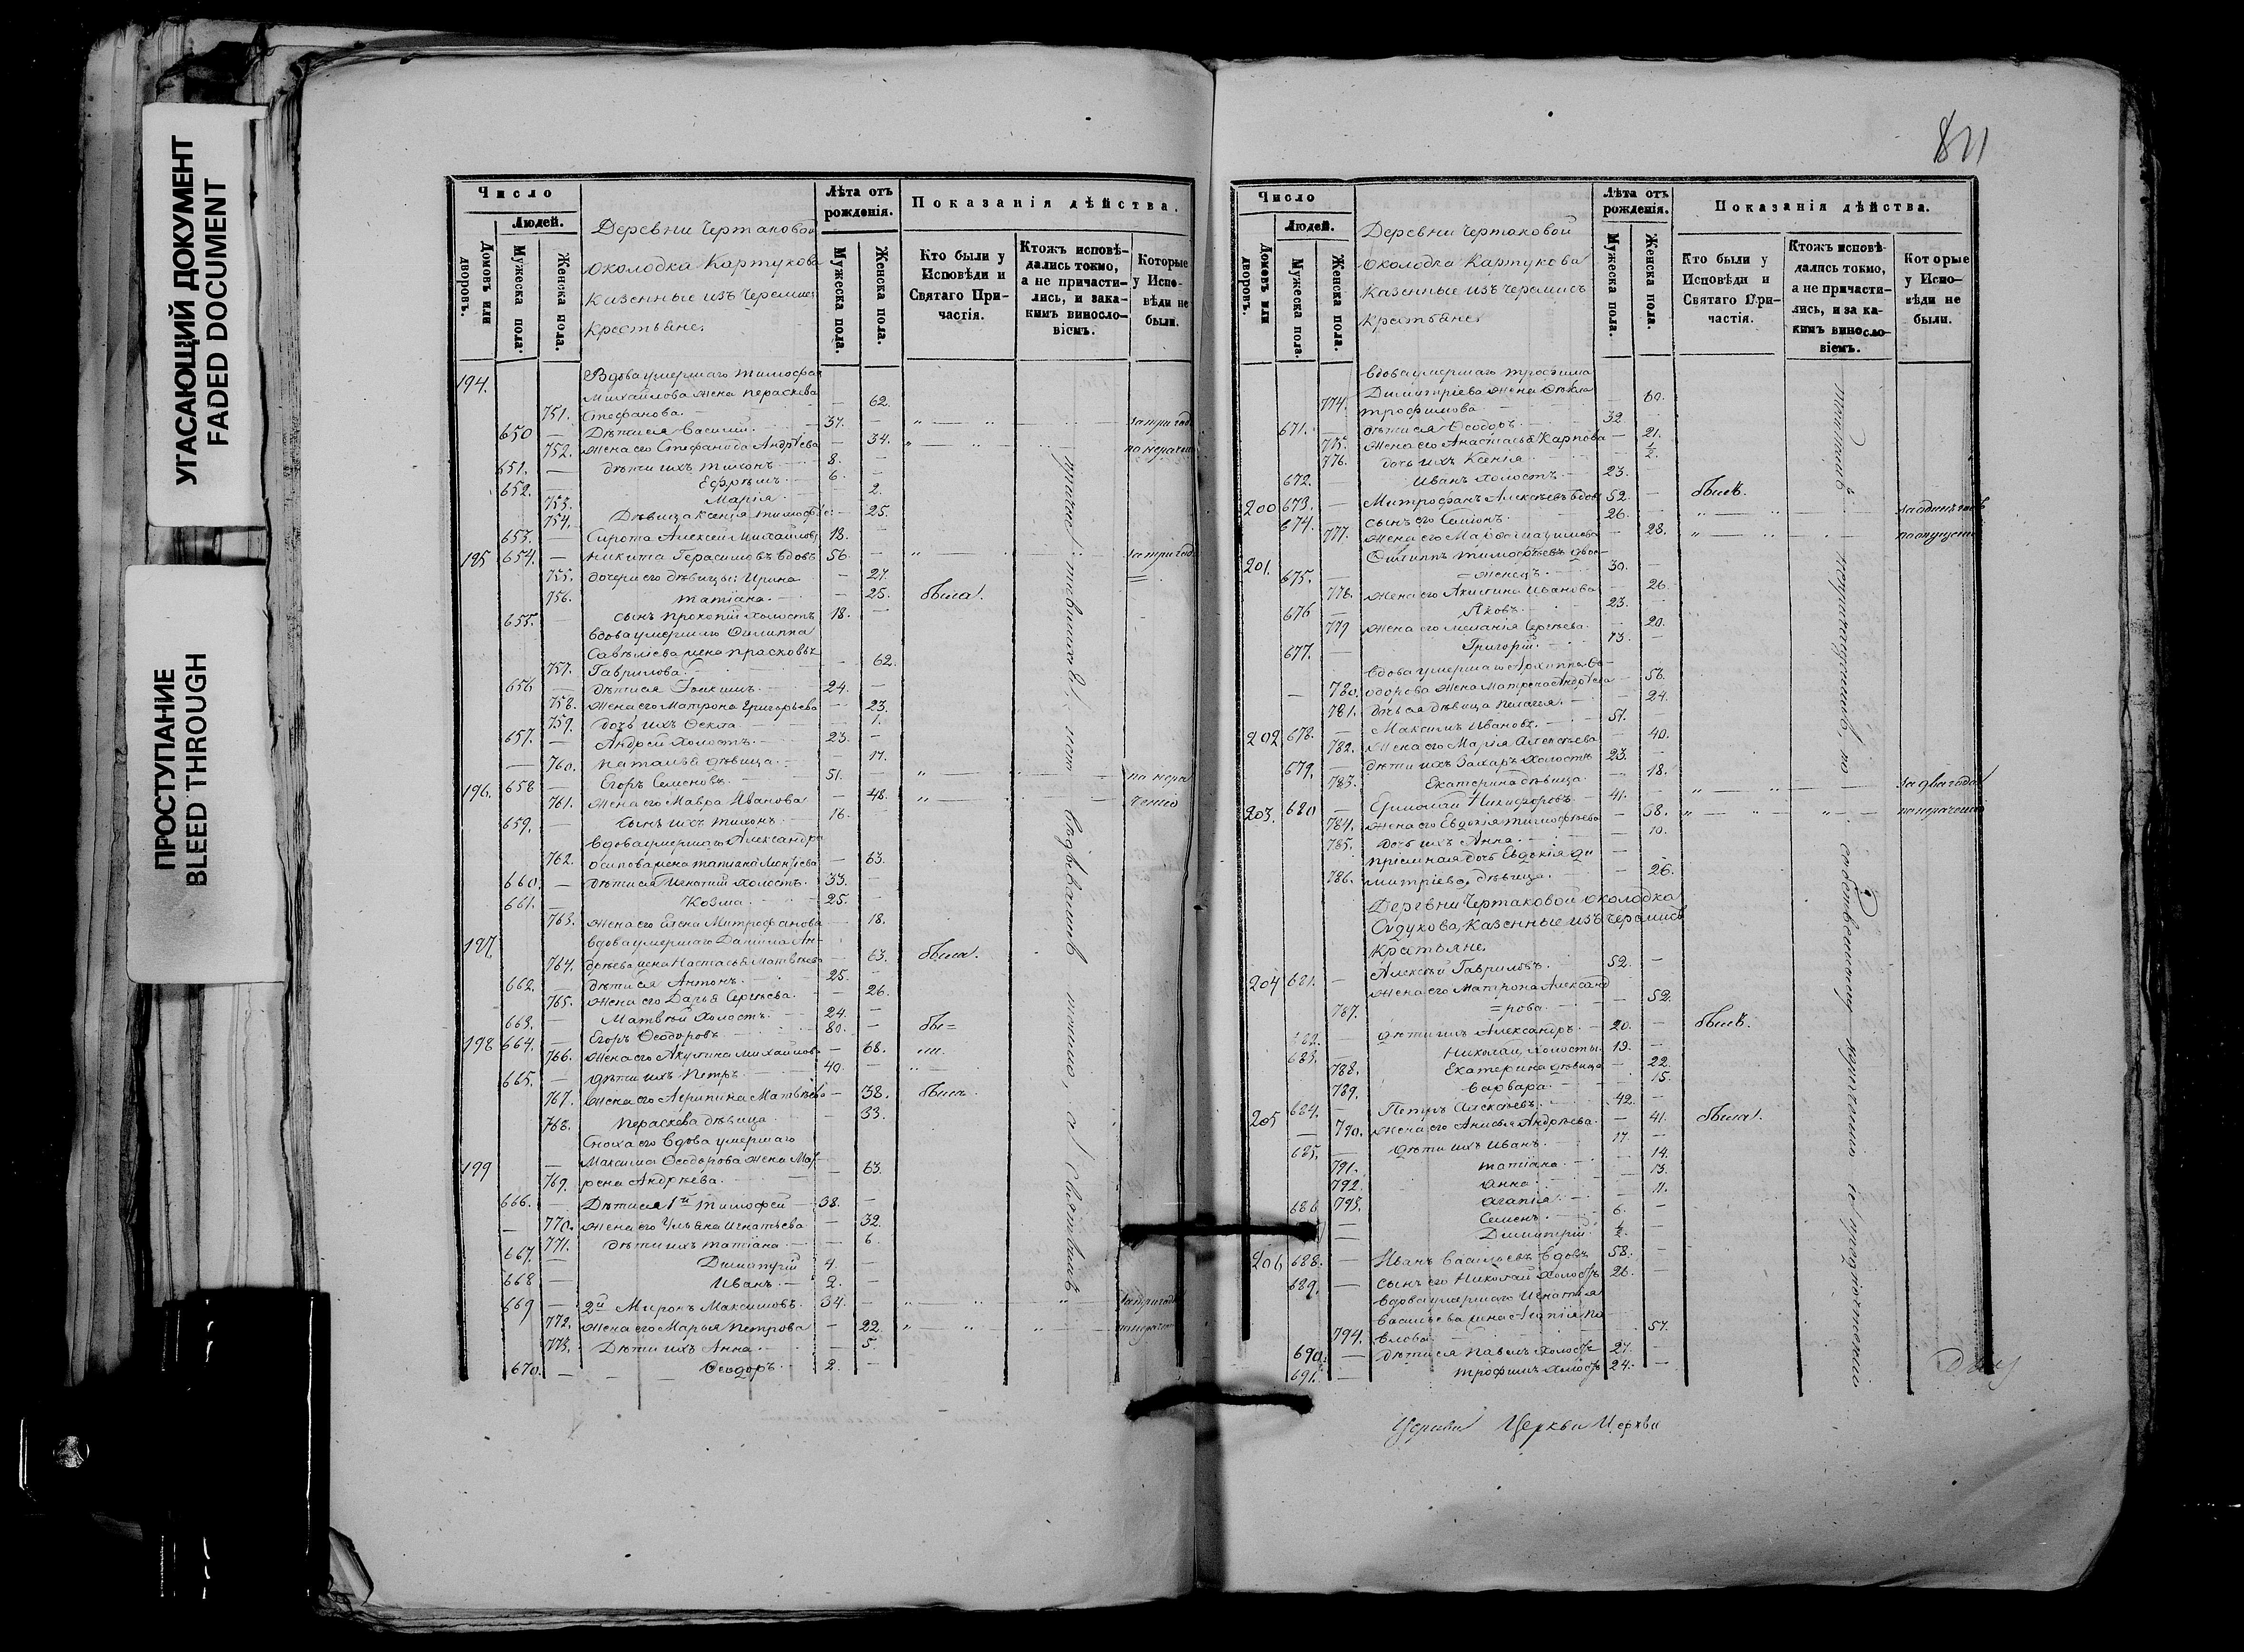 УГАСАЮЩИЙ ДОКУМЕНТ
FADED DOCUMENT
ПРОСТУПАНИЕ
BLEED THROUGH
Число
Людей.
Домовъ или дворовъ.
Мужеска пола.
Женска пола.
Деревни Чертаковой
околодка Картукова
казенные изъ черемис
крестьяне.
Лѣта отъ рожденія.
Мужеска пола.
Женска пола.
Показанія дѣйства.
Кто были у Исповѣди и Святаго Причастія.
Ктожъ исповѣдались токмо, а не причастились, и за какимъ винословіемъ.
Которые у Исповѣди не были.
194. Вдова умершаго Тимофея
Михайлова жена Параскева
751. Стефанова. — 62.
650 — Дѣти ея Василій. 37. — за три года
752. Жена его Стефанида Андрѣева — 34. по нерачен
651. — дѣти ихъ Тихонъ 8. —
652. — Ефремъ 6. —
753. Марія — 2.
754. Дѣвица Ксенія Тимофе: — 25.
653. — Сирота Алексей Михайловъ 18.
195 654. — Никита Герасимовъ вдовъ 56. — за три года
755. дочери его дѣвицы: Ирина — 27.
756. Татіана. — 25. была.
655. — сынъ Прокопій холостъ 18. —
вдова умершаго Филиппа
Савельева жена Прасковья
757. Гаврилова. — 62.
656 — дѣти ея Іоакимъ. 24. —
758. Жена его Матрона Григорьева — 23.
759. дочь ихъ Фекла — 1.
657. — Андрей холостъ. 23. —
— 760. Наталья дѣвица. — 17.
196. 658 — Егоръ Семеновъ. 51. — по нера
761. Жена его Мавра Иванова — 48. ченію
659. — Сынъ ихъ Тихонъ 16. —
вдова умершаго Александра
762. Осипова жена Татіана — 63.
660. — дѣти ея Игнатій холостъ. 33. —
661. — Козма 25. —
763. жена его Елена Митрофанова — 18.
197. вдова умершаго Данила Ан-
764. дреева жена Настасья Матвѣева 63. была.
662. — дѣти ея Антонъ. 25. —
765. Жена его Дарья Сергѣева. — 26.
663. — Матвѣй холостъ. 24. —
198 664. — Егоръ Ѳеодоровъ 80. — бы=
766. Жена его Акулина Михайлова — 68. ли.
665. — дѣти ихъ Петръ 40. —
767. Жена его Агрипина Матвѣева — 38. были
768. Параскева дѣвица — 33.
Сноха его вдова умершаго
199 — Максима Ѳеодорова жена Мат-
769. рена Андрѣева. — 63.
666. — Дѣти ея 1й Тимофей — 38. —
— 770. Жена его Ульяна Игнатьева — 32.
771. дѣти ихъ Татіана — 6.
667. — Димитрій 4. —
668 — Иванъ. — 2. —
669 — 2й Миронъ Максимовъ. 34. — за три года
772. Жена его Марья Петрова — 22. по нерачен
773. Дѣти ихъ Анна. — 5.
670. — Ѳеодоръ 2. —
811
Число
Людей.
Домовъ или дворовъ.
Мужеска пола.
Женска пола.
Деревни Чертаковой
околодка Картукова
казенные изъ черемисъ
крестьяне.
Лѣта отъ рожденія.
Мужеска пола.
Женска пола.
Показанія дѣйства.
Кто были у Исповѣди и Святаго Причастія.
Ктожъ исповѣдались токмо, а не причастились, и за какимъ винословіемъ.
Которые у Исповѣди не были.
вдова умершаго Трофима
Димитріева жена Ѳекла
774. Трофимова — 60.
671. — дѣти ея Ѳеодоръ. 32 —
775. Жена его Анастасья Карпова — 21.
776. дочь ихъ Ксенія — ½.
672. — Иванъ холостъ. 23. —
200 673. — Митрофанъ Алексѣевъ вдовъ 52. — былъ.
674. — сынъ его Семіонъ 26. —
777. Жена его Марѳа — 28. по опущенію
201. Филиппъ Тимофѣевъ двое-
675. — =женецъ 30. —
778. Жена его Акилина Иванова — 26.
676 — Яковъ. 23. —
779 Жена его Меланія Сергѣева. — 20.
677. — Григорій. 13. —
вдова умершаго Архиппа Ѳе-
— 780. одорова жена Матрена Андрѣева — 56.
781. дочь ея дѣвица Пелагія — 24.
202 678. — Максимъ Ивановъ. 51. —
782. Жена его Марія Алексѣева — 40.
679. — дѣти ихъ Захаръ холостъ 23.
783. Екатерина дѣвица. — 18.
203. 680 — Ермолай Никифоровъ 41. — за два года
784. Жена его Евдокія Тимофѣева — 38. по нерачению
785. Дочь ихъ Анна. — 10.
пріемная дочь Евдокія Ди
786. митріева, дѣвица. — 26.
Деревни Чертаковой околодка
Сидукова, Казенные изъ черемисъ
Крестьяне
204 681. — Алексѣй Гавриловъ. 52. —
Жена его Матрона Александ
787. =рова — 52.
682. — дѣти ихъ Александръ 20. — былъ.
683. — Николай, холосты. 19. —
788. Екатерина дѣвица — 22.
789. Варвара — 15.
205 684. — Петръ Алексѣевъ. 42. —
— 790. Жена его Анисья Андрѣева. — 41. была.
685. — Дѣти ихъ Иванъ. 17. —
791. Татіана — 14.
792. Анна — 13.
793. Агапія — 11.
686 — Семенъ. 6. —
— Димитрій. ½. —
206 688. — Иванъ Васильевъ вдовъ 58. —
689. — Сынъ его Николай холостъ 26. —
вдова умершаго Игнатія
Васильева жена Агапія Па
794. влова — 57.
690. — дѣти ея Павелъ холостъ 27. —
691. — Трофимъ холостъ 24. —
Церкви Церкви Церкви